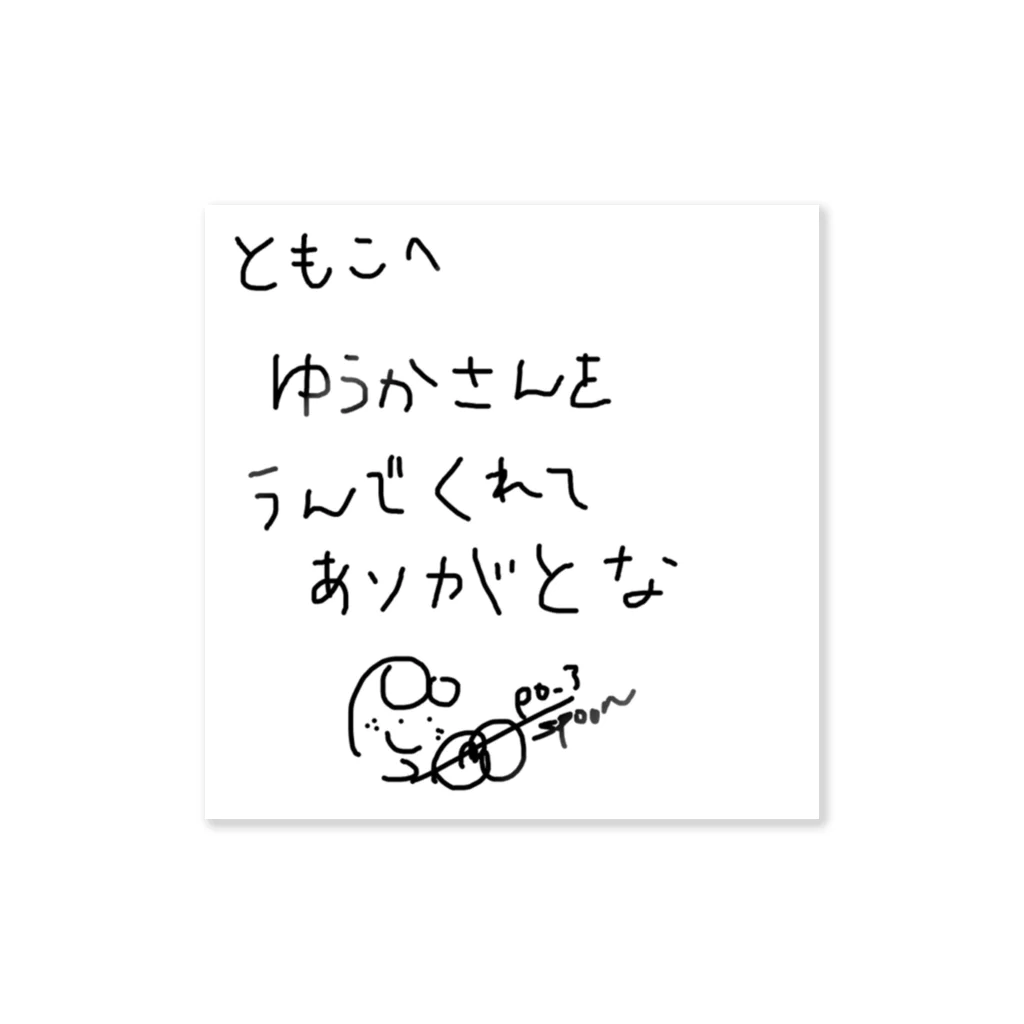 ともこへ
ゆうかさんを
うんでくれて
ありがとな
spoon